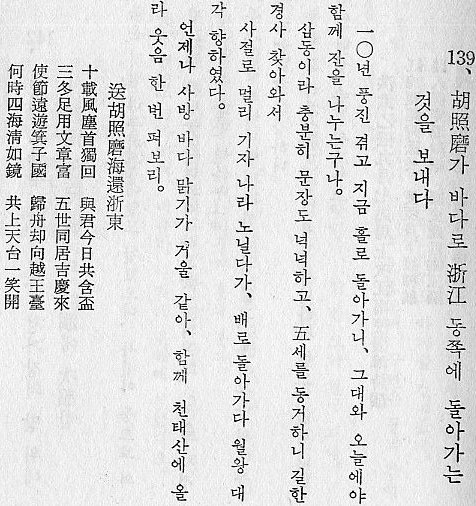 139、胡照磨가 바다로 浙江 동쪽에 돌아가는
것을 보내다
一〇년 풍진 겪고 지금 홀로 돌아가니、그대와 오늘에야
함께 잔을 나누는구나。
삼동이라 충분히 문장도 넉넉하고、五세를 동거하니 길한
경사 찾아와서
사절로 멀리 기자 나라 노닐다가、배로 돌아가다 월왕 대
각 향하였다。
언제나 사방 바다 맑기가 거울 같아、함께 천태산에 올
라 웃음 한 번 펴보리。
送胡照磨海還浙東
十載風塵首獨回 與君今日共含盃
三冬足用文章富 五世同居吉慶來
使節遠遊箕子國 歸舟却向越王臺
何時四海清如鏡 共上天台一笑開